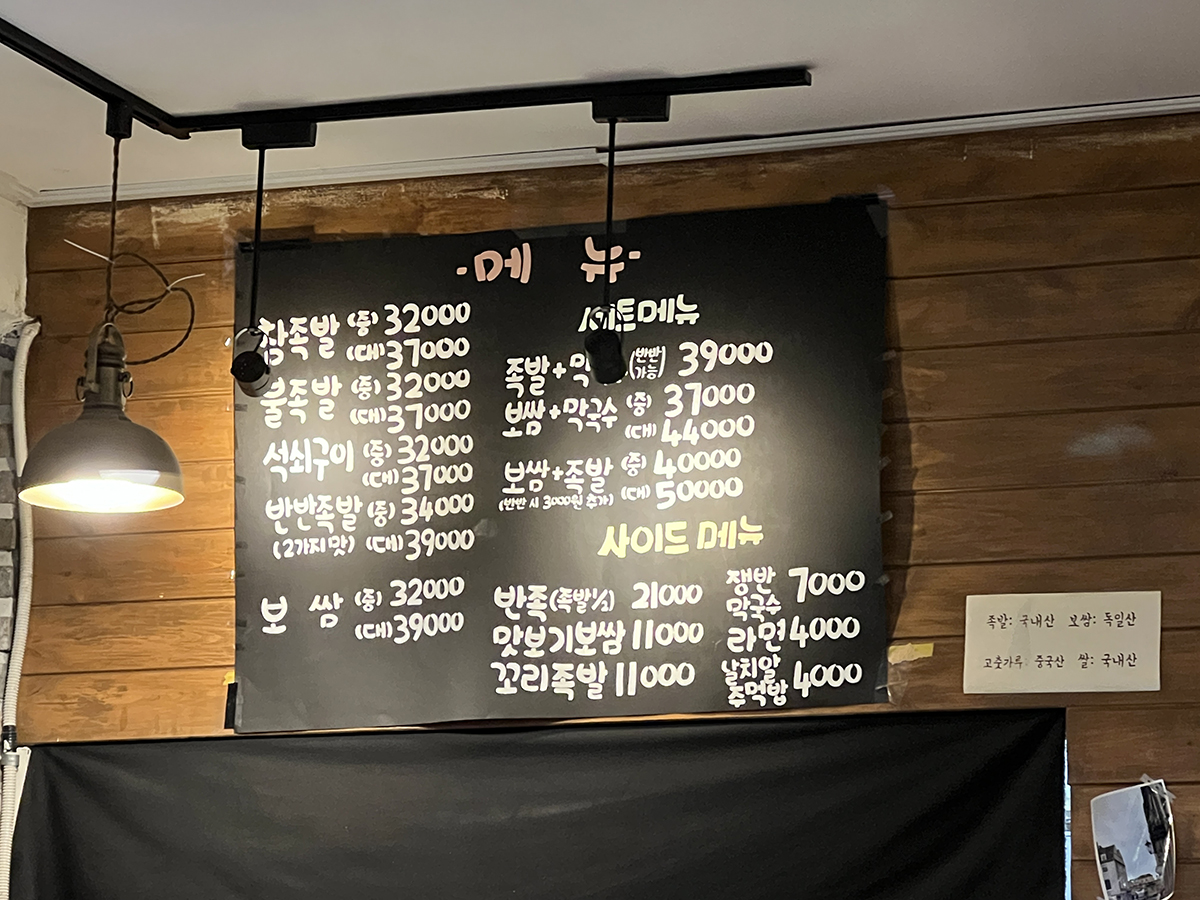 ·메 뉴·
참족발 (중) 32000
(대) 37000
불족발 (중) 32000
(대) 37000
석쇠구이 (중) 32000
(대) 37000
반반족발 (중) 34000
(2가지맛) (대) 39000
보 쌈 (중) 32000
(대) 39000
메뉴
족발+ (반반가능) 39000
보쌈+막국수 (중) 37000
(대) 44000
보쌈+족발 (중) 40000
(반반시 3000원 추가) (대) 50000
사이드 메뉴
반족(족발1/2) 21000
맛보기보쌈 11000
꼬리족발 11000
쟁반막국수 7000
라면 4000
날치알주먹밥 4000
족발: 국내산 보쌈: 독일산
고춧가루: 중국산 쌀: 국내산